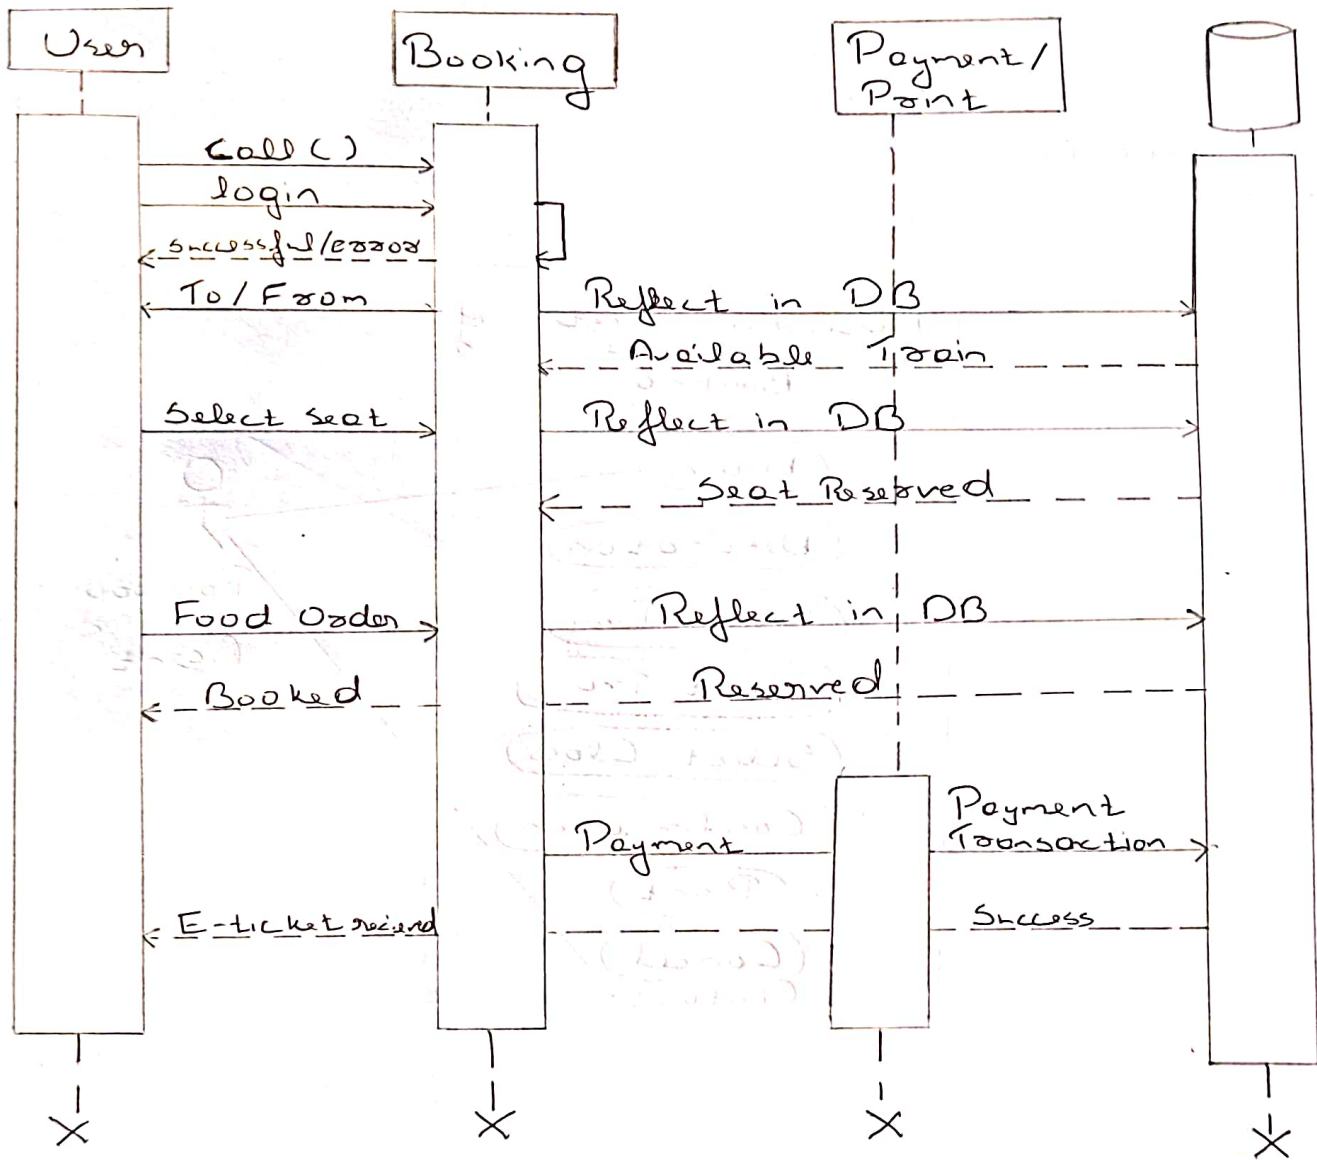 User
Booking
Payment/
Print
Call()
login
successful/error
To/From
Reflect in DB
Available Train
Select seat
Reflect in DB
Seat Reserved
Food Order
Reflect in DB
Booked
Reserved
Payment
Payment
Transaction
E-ticket
Success